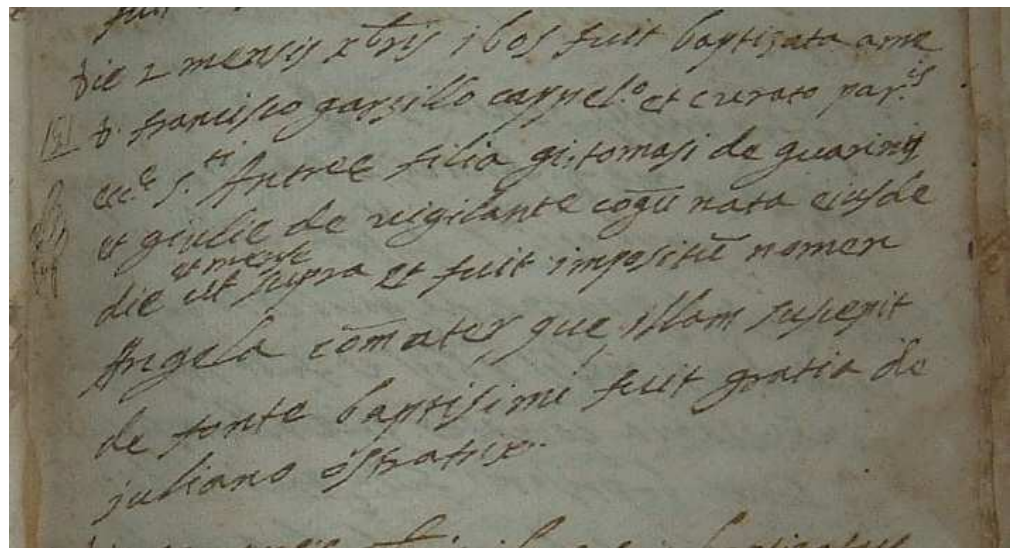 die 2 mensis xbris 1605 fuit baptizata a me
d. francisco garzillo cappel.o et curato par.is
ecc.e s.ti Andree filia gi: tomasi de guarinis
et giulie de vigilante cōgū nata eiusde
et mense
die ut supra et fuit impositū nomen
Angela cōmater que illam suscepit
de fonte baptisimi fuit gratia de
juliano ostratrix.